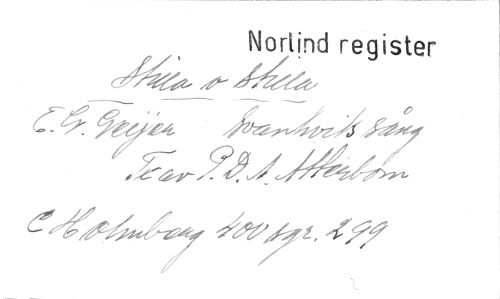 Norlind register
Stilla o stilla
E. G. Geijer Svanhvits sång
Tex av P. D. A. Atterbom
C Holmberg 400 sgr. 299